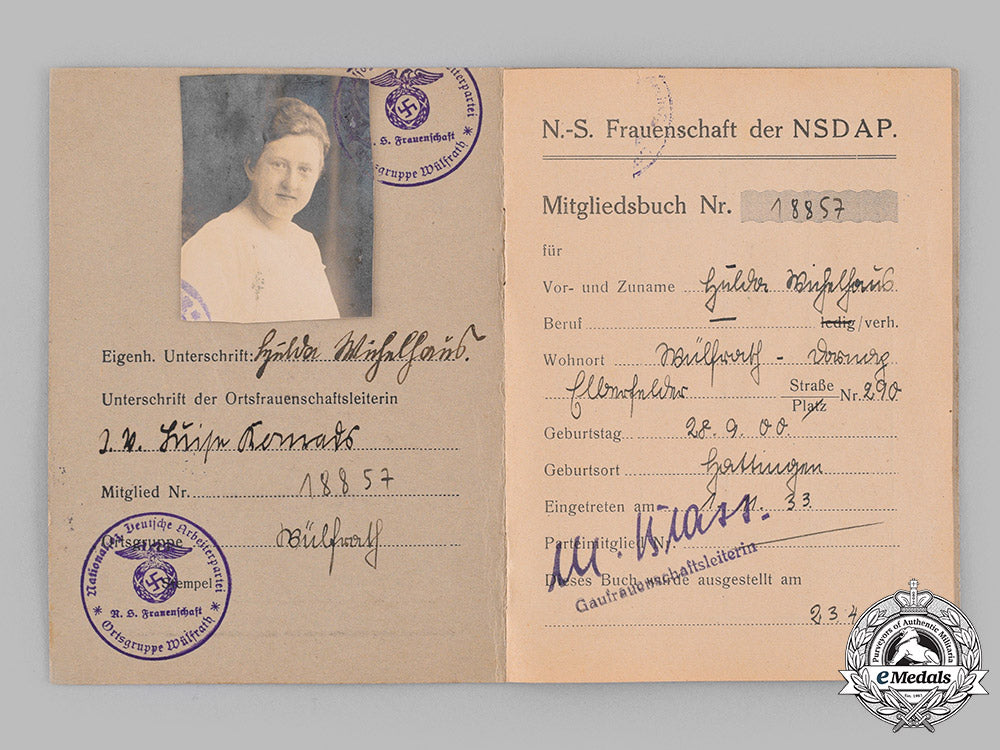 N. S. Frauenschaft
Ortsgruppe Wülfrath
Eigenh. Unterschrift: Hulda Wichelhaus.
Unterschrift der Ortsfrauenschaftsleiterin
I. V. Luise Konrads
Mitglied Nr. 18857
Ortsgruppe Wülfrath
Stempel
Nationalsoz. Deutsche Arbeiterpartei
N. S. Frauenschaft
Ortsgruppe Wülfrath
N.-S. Frauenschaft der NSDAP.
Mitgliedsbuch Nr. 18857
für
Vor- und Zuname Hulda Wichelhaus
Beruf — ledig/verh.
Wohnort Wülfrath -
Elberfelder Straße Platz Nr. 290
Geburtstag 28.9.00.
Geburtsort Hattingen
Eingetreten am 1.11.33
Parteimitglied Nr.
Gaufrauenschaftsleiterin
Dieses Buch wurde ausgestellt am
23.4
Purveyors of Authentic Militaria
eMedals